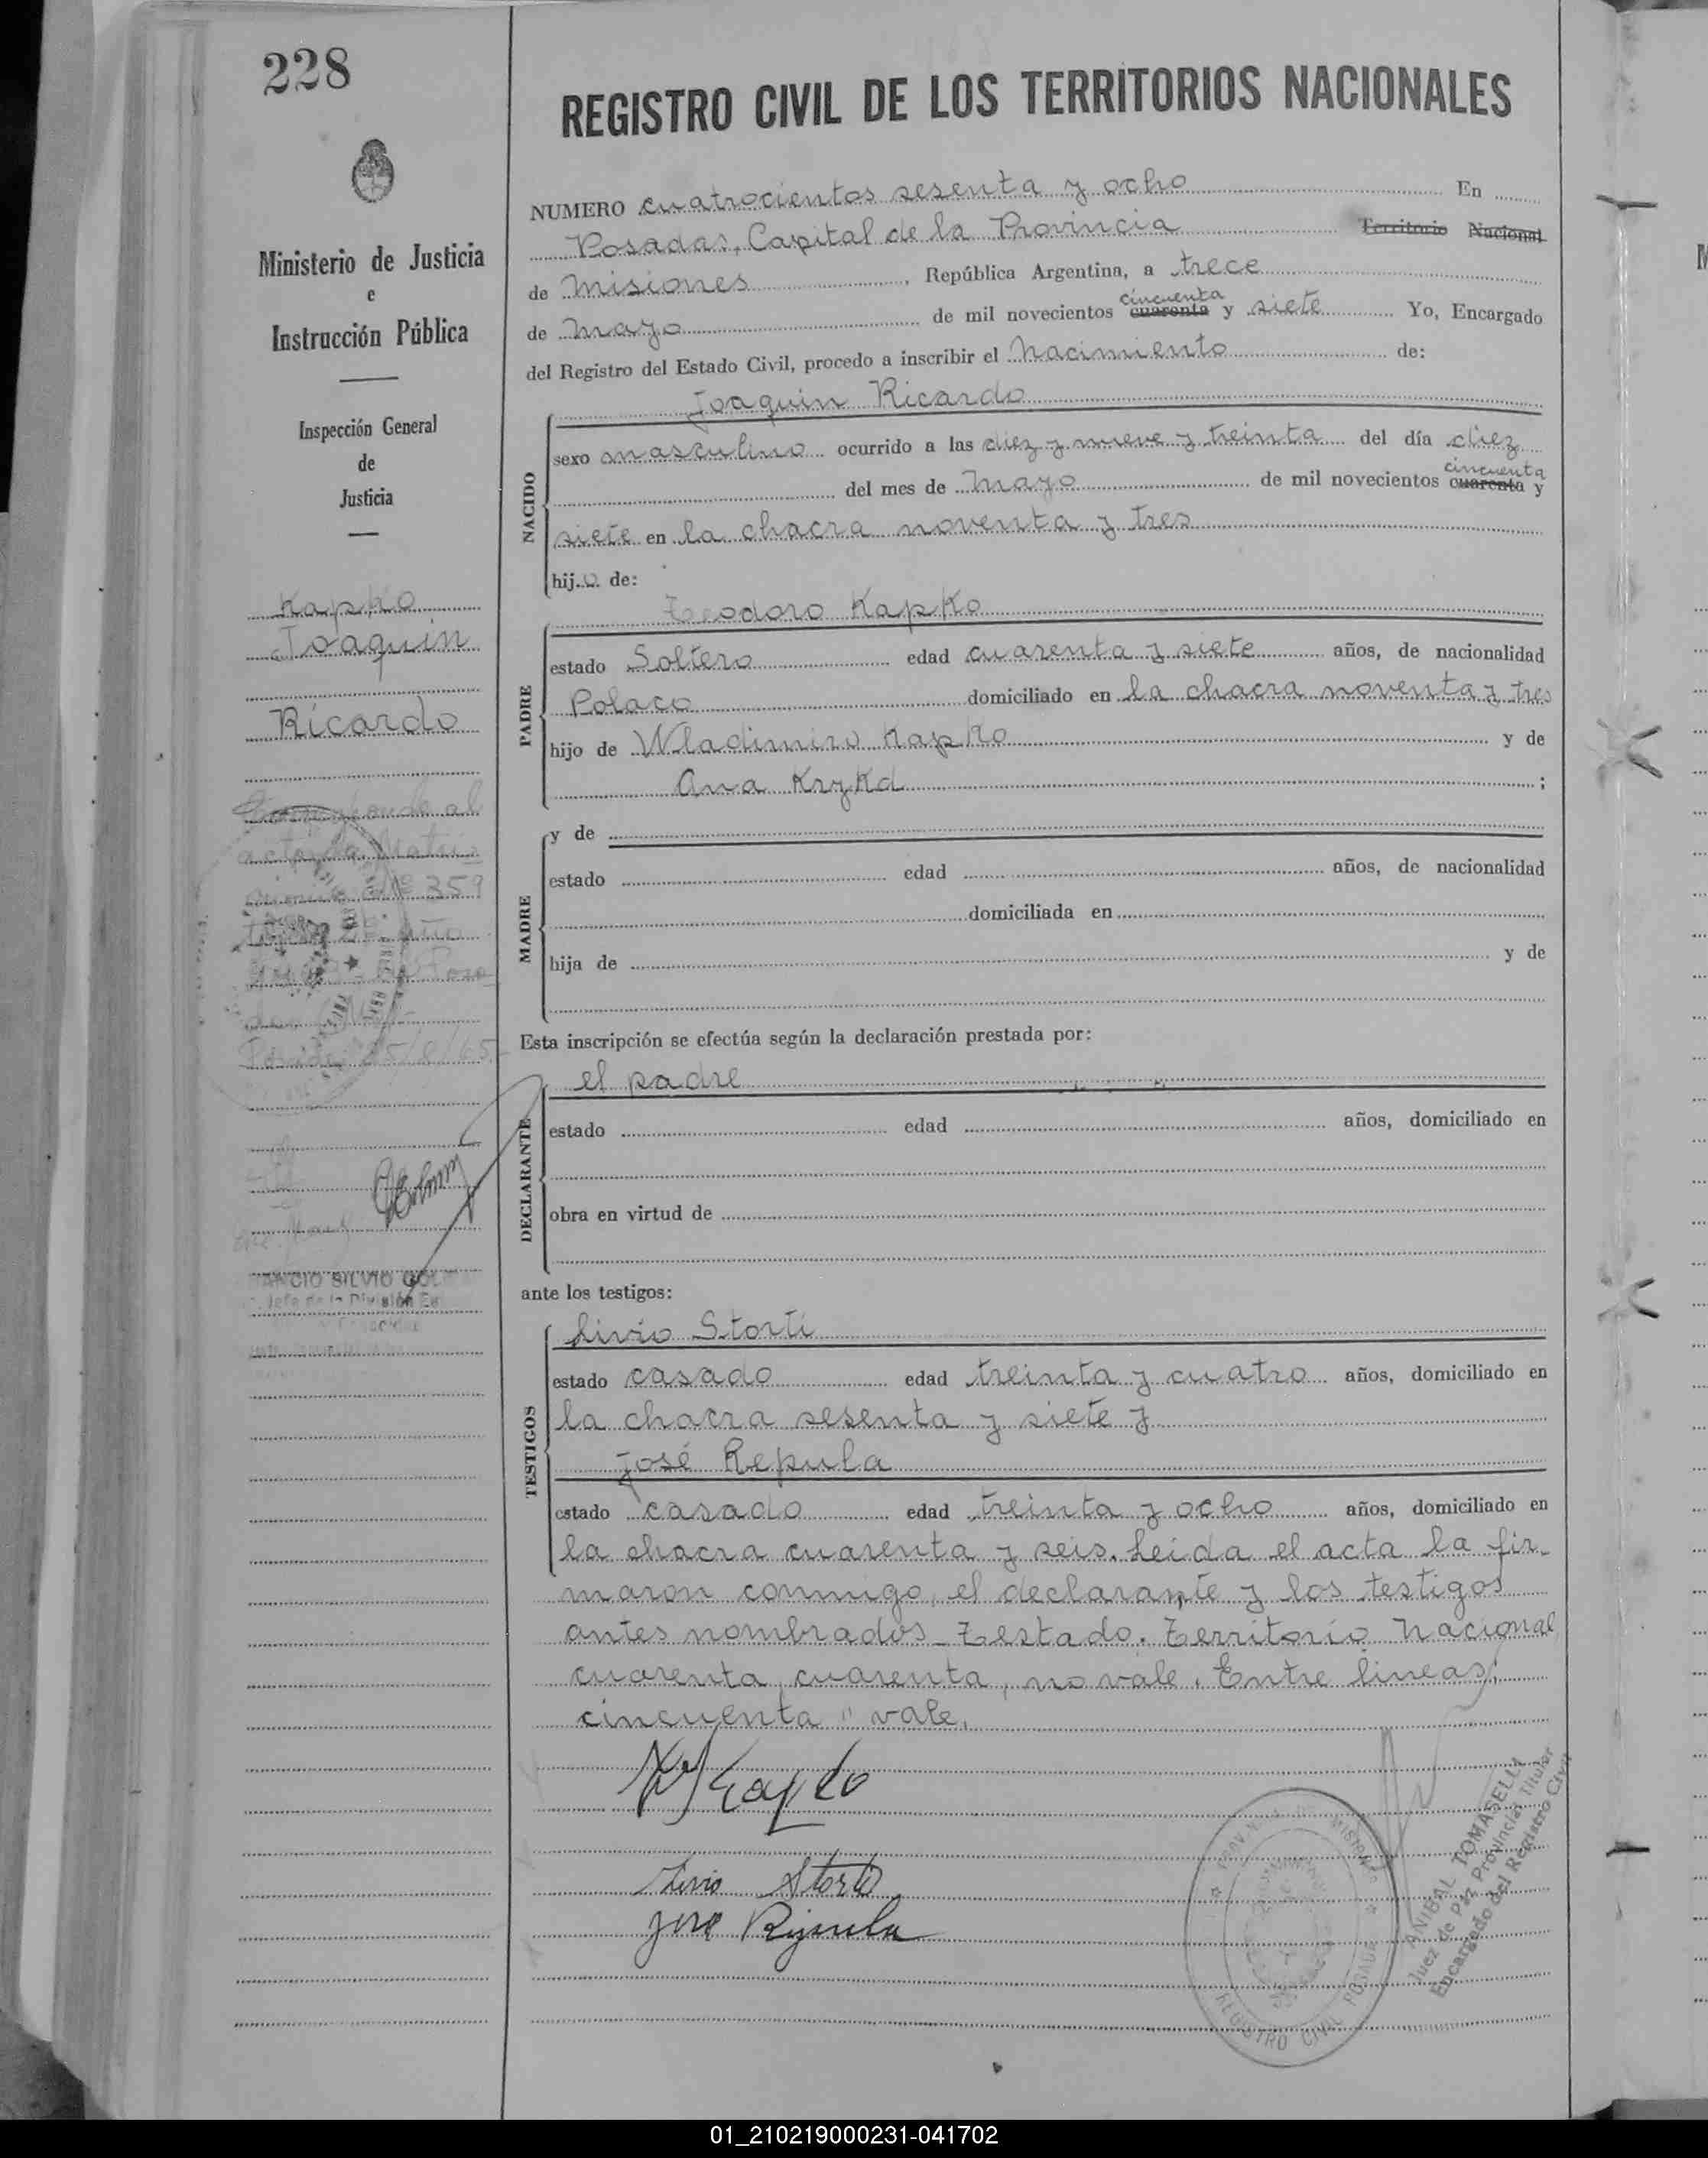 228
Ministerio de Justicia
e
Instrucción Pública
Inspección General
de
Justicia
Kapko
Joaquin
Ricardo
Corresponde al
acta de Matri
Nº 359
año
Posadas
REGISTRO CIVIL DE LOS TERRITORIOS NACIONALES
NUMERO cuatrocientos sesenta y ocho En
Posadas, Capital de la Provincia Territorio Nacional
de Misiones, República Argentina, a trece
cincuenta
de Mayo de mil novecientos cuarenta y siete Yo, Encargado
del Registro del Estado Civil, procedo a inscribir el Nacimiento de:
Joaquin Ricardo
NACIDO
sexo masculino ocurrido a las diez y nueve y treinta del día diez
cincuenta
del mes de Mayo de mil novecientos cuarenta y
siete en la chacra noventa y tres
hijo de:
Teodoro Kapko
PADRE
estado Soltero edad cuarenta y siete años, de nacionalidad
Polaco domiciliado en la chacra noventa y tres
hijo de Wladimiro Kapko y de
Ana ;
MADRE
y de
estado edad años, de nacionalidad
domiciliada en
hija de y de
Esta inscripción se efectúa según la declaración prestada por:
el padre
DECLARANTE
estado edad años, domiciliado en
obra en virtud de
ante los testigos:
TESTIGOS
Livio Storti
estado casado edad treinta y cuatro años, domiciliado en
la chacra sesenta y siete y
José Repula
estado casado edad treinta y ocho años, domiciliado en
la chacra cuarenta y seis. Leida el acta la fir-
maron conmigo, el declarante y los testigos
antes nombrados - Testado. Territorio Nacional
cuarenta, cuarenta, no vale. Entre lineas:
cincuenta " vale.
Livio Storti
José
REGISTRO CIVIL POSADAS
ANIBAL TOMASELLI
Juez de Paz Provincial Titular
Encargado del Registro Civil
01_210219000231-041702